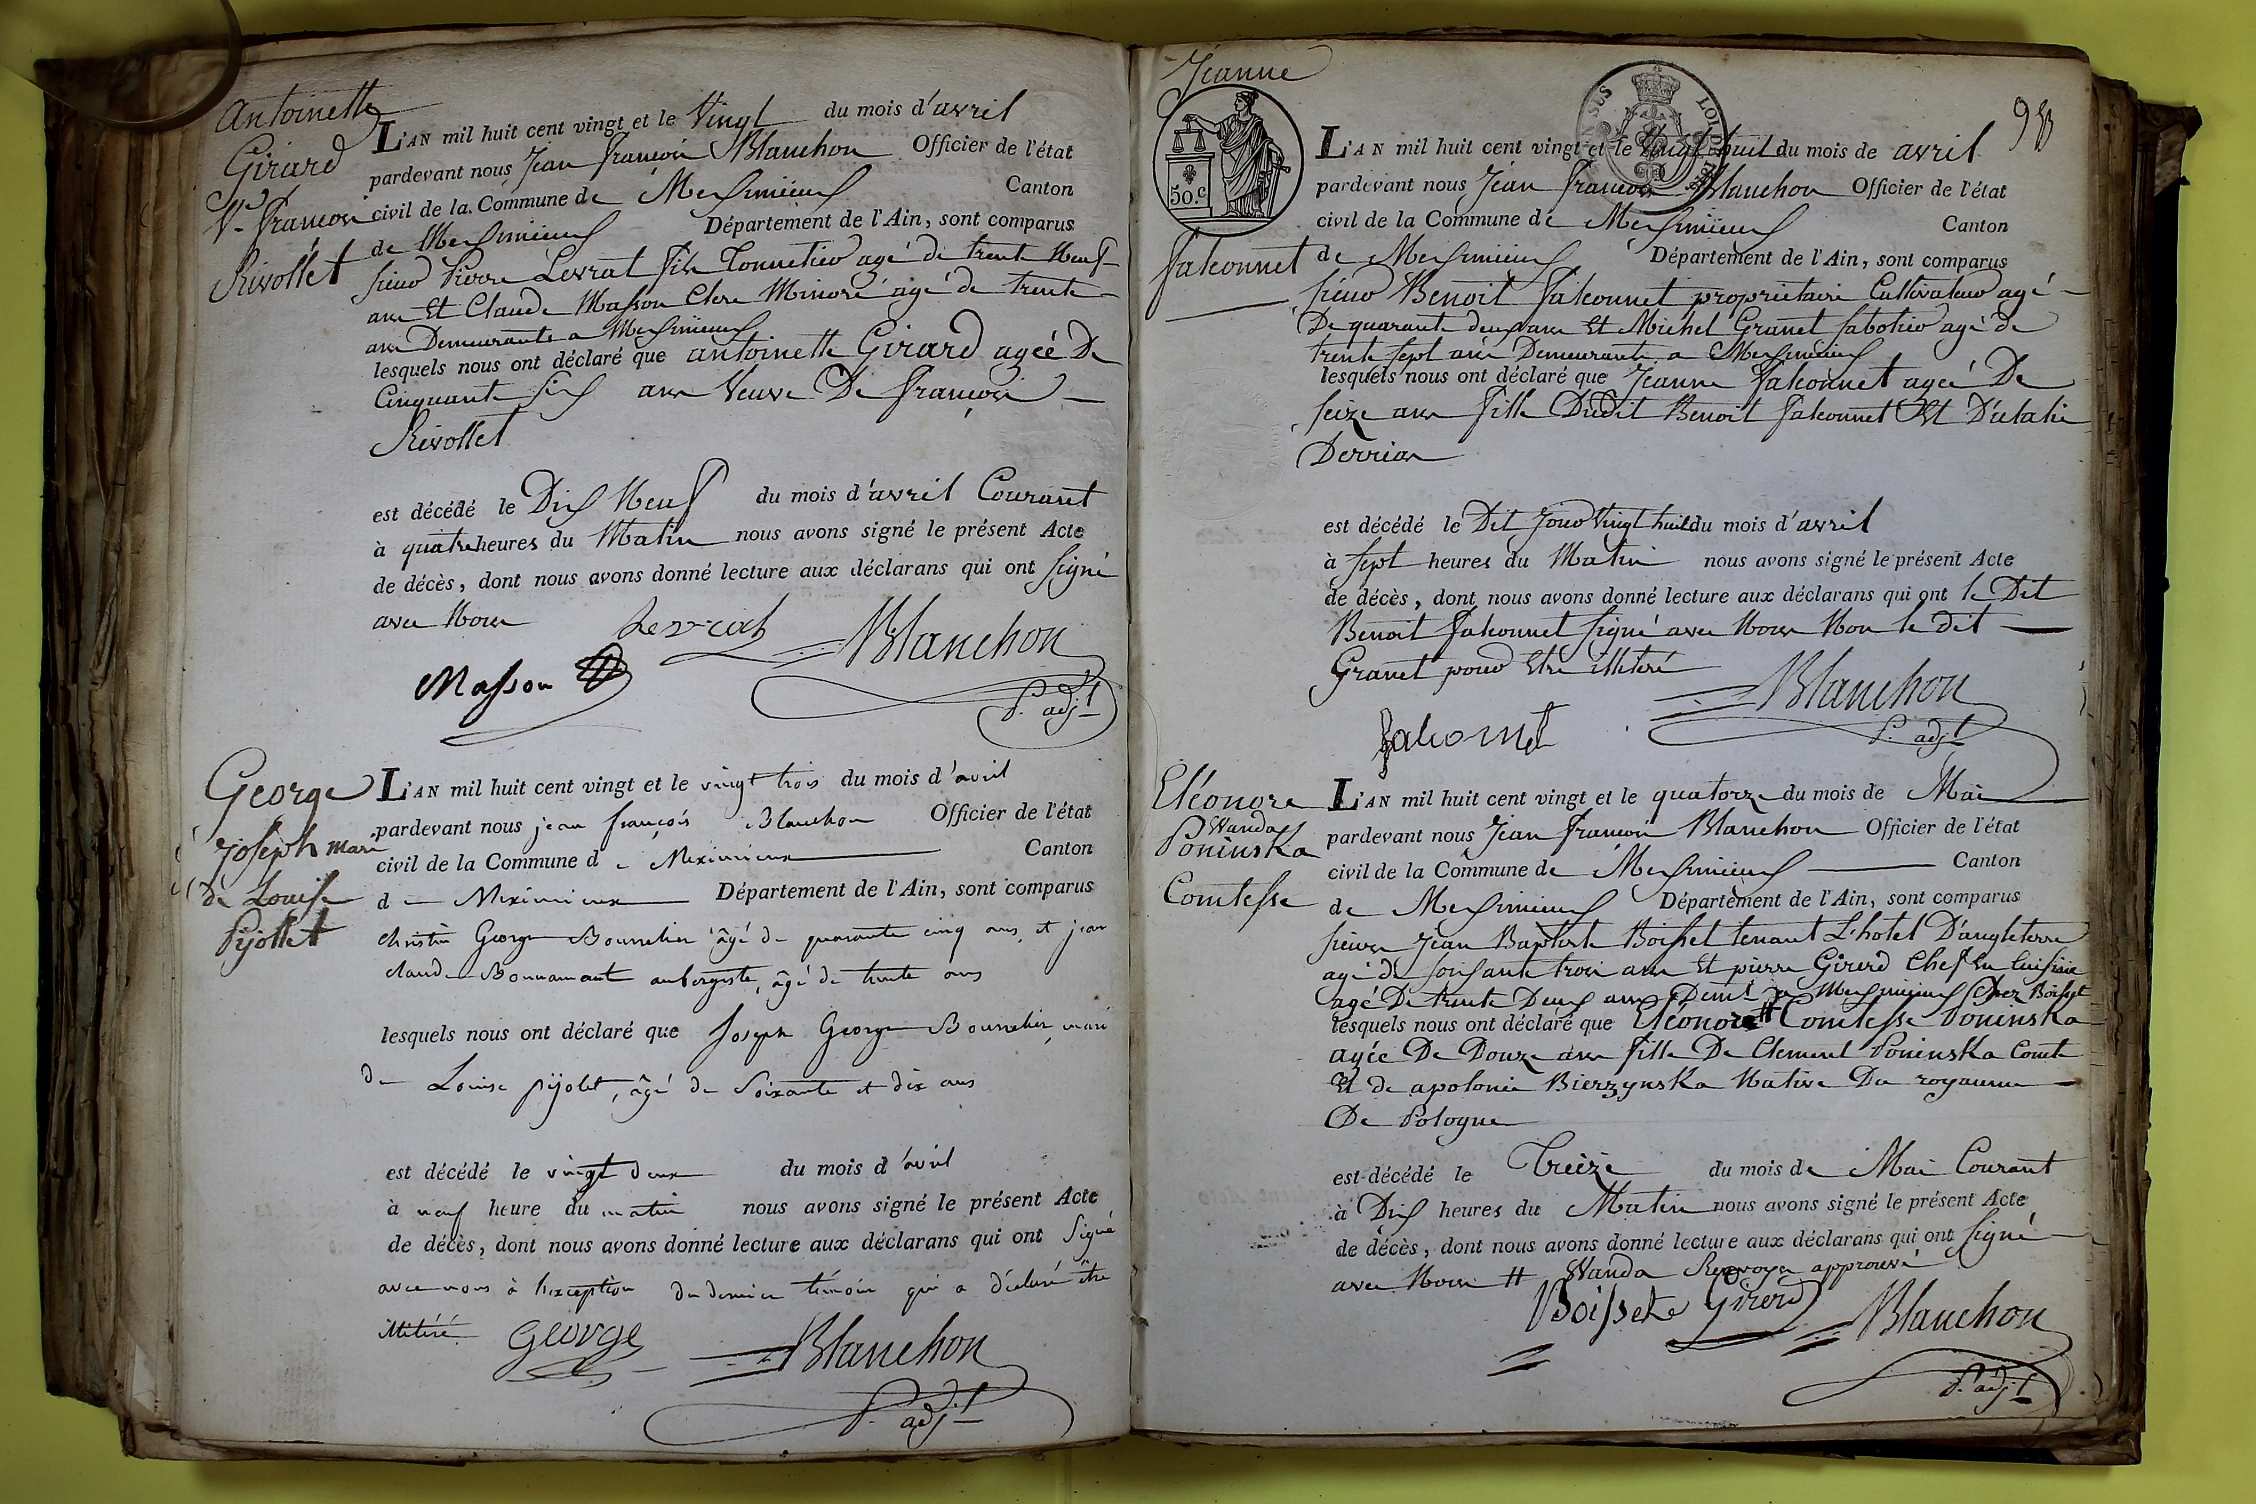 Antoinette
Girard
Ve. françois
Rivollet
L'AN mil huit cent vingt et le Vingt du mois d'avril
pardevant nous Jean françois Blanchon Officier de l'état
civil de la Commune de Meximieux Canton
de Meximieux Département de l'Ain, sont comparus
sieur Pierre Levrat fils Tonnelier agé de trente Neuf
ans Et Claude Masson Clerc Minoré agé de trente
ans Demeurants a Meximieux
lesquels nous ont déclaré que antoinette Girard agée De
Cinquante six ans Veuve De françois
Rivollet
est décédé le Dix Neuf du mois d'avril Courant
à quatre heures du Matin nous avons signé le présent Acte
de décès, dont nous avons donné lecture aux déclarans qui ont signé
avec Nous Levrat Blanchon
Masson
P. adjt
George
joseph mari
de Louise
Pijollet
L'AN mil huit cent vingt et le vingt trois du mois d'avril
pardevant nous jean françois Blanchon Officier de l'état
civil de la Commune de Meximieux Canton
de Meximieux Département de l'Ain, sont comparus
christin George Bourrelier âgé de quarante cinq ans, et jean
claude Bonnamant aubergiste, âgé de trente ans
lesquels nous ont déclaré que Joseph George Bourrelier, mari
de Louise pijolet, âgé de soixante et dix ans
est décédé le vingt deux du mois d'avril
à neuf heure du matin nous avons signé le présent Acte
de décès, dont nous avons donné lecture aux déclarans qui ont signé
avec nous à l'exception du dernier témoin qui a déclaré être
illitéré George Blanchon
P. adjt
Jeanne
falconnet
50.c
LOI DE
93
L'AN mil huit cent vingt et le Vingt huit du mois de avril
pardevant nous Jean françois Blanchon Officier de l'état
civil de la Commune de Meximieux Canton
de Meximieux Département de l'Ain, sont comparus
sieur Benoit falconnet proprietaire Cultivateur agé
De quarante deux ans Et Michel Granet sabotier agé de
trente sept ans Demeurants a Meximieux
lesquels nous ont déclaré que Jeanne falconnet agée De
seize ans fille Dudit Benoit falconnet Et D'eulalie
Derrias
est décédé le Dit Jour Vingt huit du mois d'avril
à sept heures du Matin nous avons signé le présent Acte
de décès, dont nous avons donné lecture aux déclarans qui ont le Dit
Benoit falconnet signé avec Nous Non le dit
Granet pour Etre illiteré
Blanchon
falconnet P. adjt
Eléonore
Wanda
Poninska
Comtesse
L'AN mil huit cent vingt et le quatorze du mois de Mai
pardevant nous Jean françois Blanchon Officier de l'état
civil de la Commune de Meximieux Canton
de Meximieux Département de l'Ain, sont comparus
sieurs Jean Baptiste Boisset tenant L'hotel D'angleterre
agé de soixante trois ans Et pierre Girerd Chef En Cuisine
agé De trente Deux ans Demt a Meximieux Chez Boisset
lesquels nous ont déclaré que Eléonore # Comtesse Poninska
agée De Douze ans fille De Clement Poninska Comte
Et de apolonie Bierzynska Native Du royaume
De Pologne
est décédé le Treize du mois de Mai Courant
à Dix heures du Matin nous avons signé le présent Acte
de décès, dont nous avons donné lecture aux déclarans qui ont signé
avec Nous # Wanda Renvoye approuvé
Boisset Girerd Blanchon
P. adjt